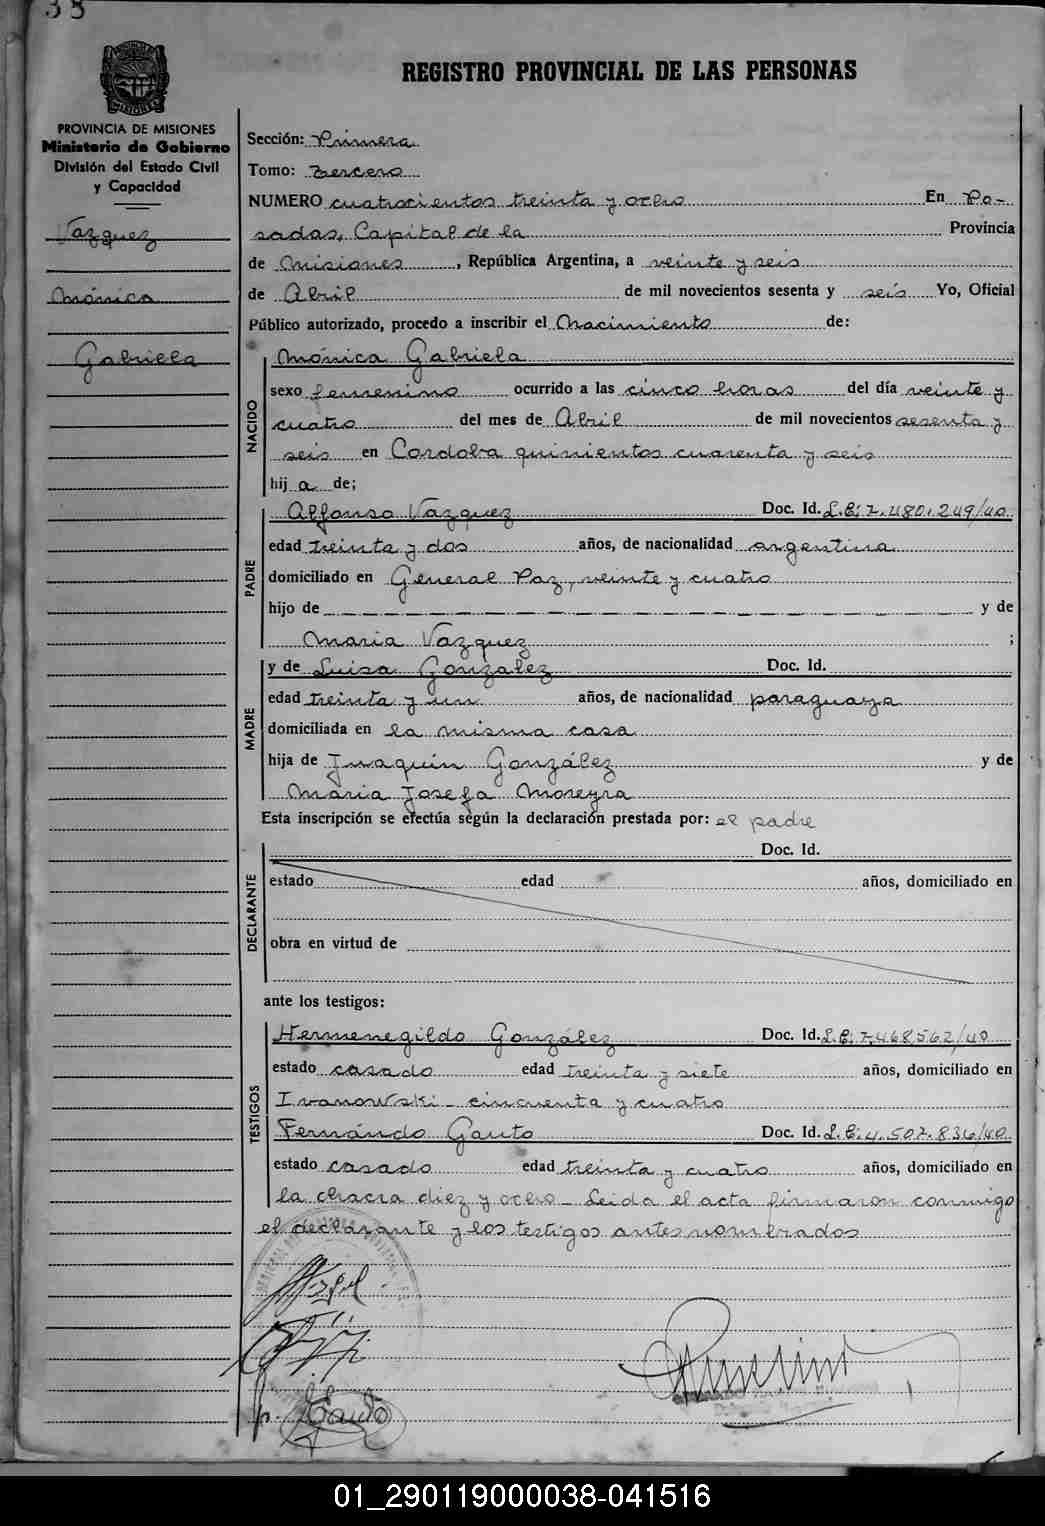 38
REGISTRO PROVINCIAL DE LAS PERSONAS
PROVINCIA DE MISIONES
Ministerio de Gobierno
División del Estado Civil
y Capacidad
Vazquez
Mónica
Gabriela
Sección: Primera
Tomo: Tercero
NUMERO cuatrocientos treinta y ocho En Po-
sadas, Capital de la Provincia
de Misiones, República Argentina, a veinte y seis
de Abril de mil novecientos sesenta y seis Yo, Oficial
Público autorizado, procedo a inscribir el Nacimiento de:
NACIDO
Mónica Gabriela
sexo femenino ocurrido a las cinco horas del día veinte y
cuatro del mes de Abril de mil novecientos sesenta y
seis en Cordoba quinientos cuarenta y seis
hija de;
PADRE
Alfonso Vazquez Doc. Id. L.E; 7.480.249/40
edad treinta y dos años, de nacionalidad argentina
domiciliado en General Paz, veinte y cuatro
hijo de y de
Maria Vazquez ;
MADRE
y de Luisa Gonzalez Doc. Id.
edad treinta y un años, de nacionalidad paraguaya
domiciliada en la misma casa
hija de Juaquin González y de
Maria Josefa Moreyra
Esta inscripción se efectúa según la declaración prestada por: el padre
DECLARANTE
Doc. Id.
estado edad años, domiciliado en
obra en virtud de
ante los testigos:
TESTIGOS
Hermenegildo González Doc. Id. L.E; 7.468.562/40
estado casado edad treinta y siete años, domiciliado en
Ivanowski - cincuenta y cuatro
Fernándo Gauto Doc. Id. L.E; 4.507.836/40
estado casado edad treinta y cuatro años, domiciliado en
la chacra diez y ocho - Leida el acta firmaron conmigo
el declarante y los testigos antes nombrados
Gauto
01_290119000038-041516